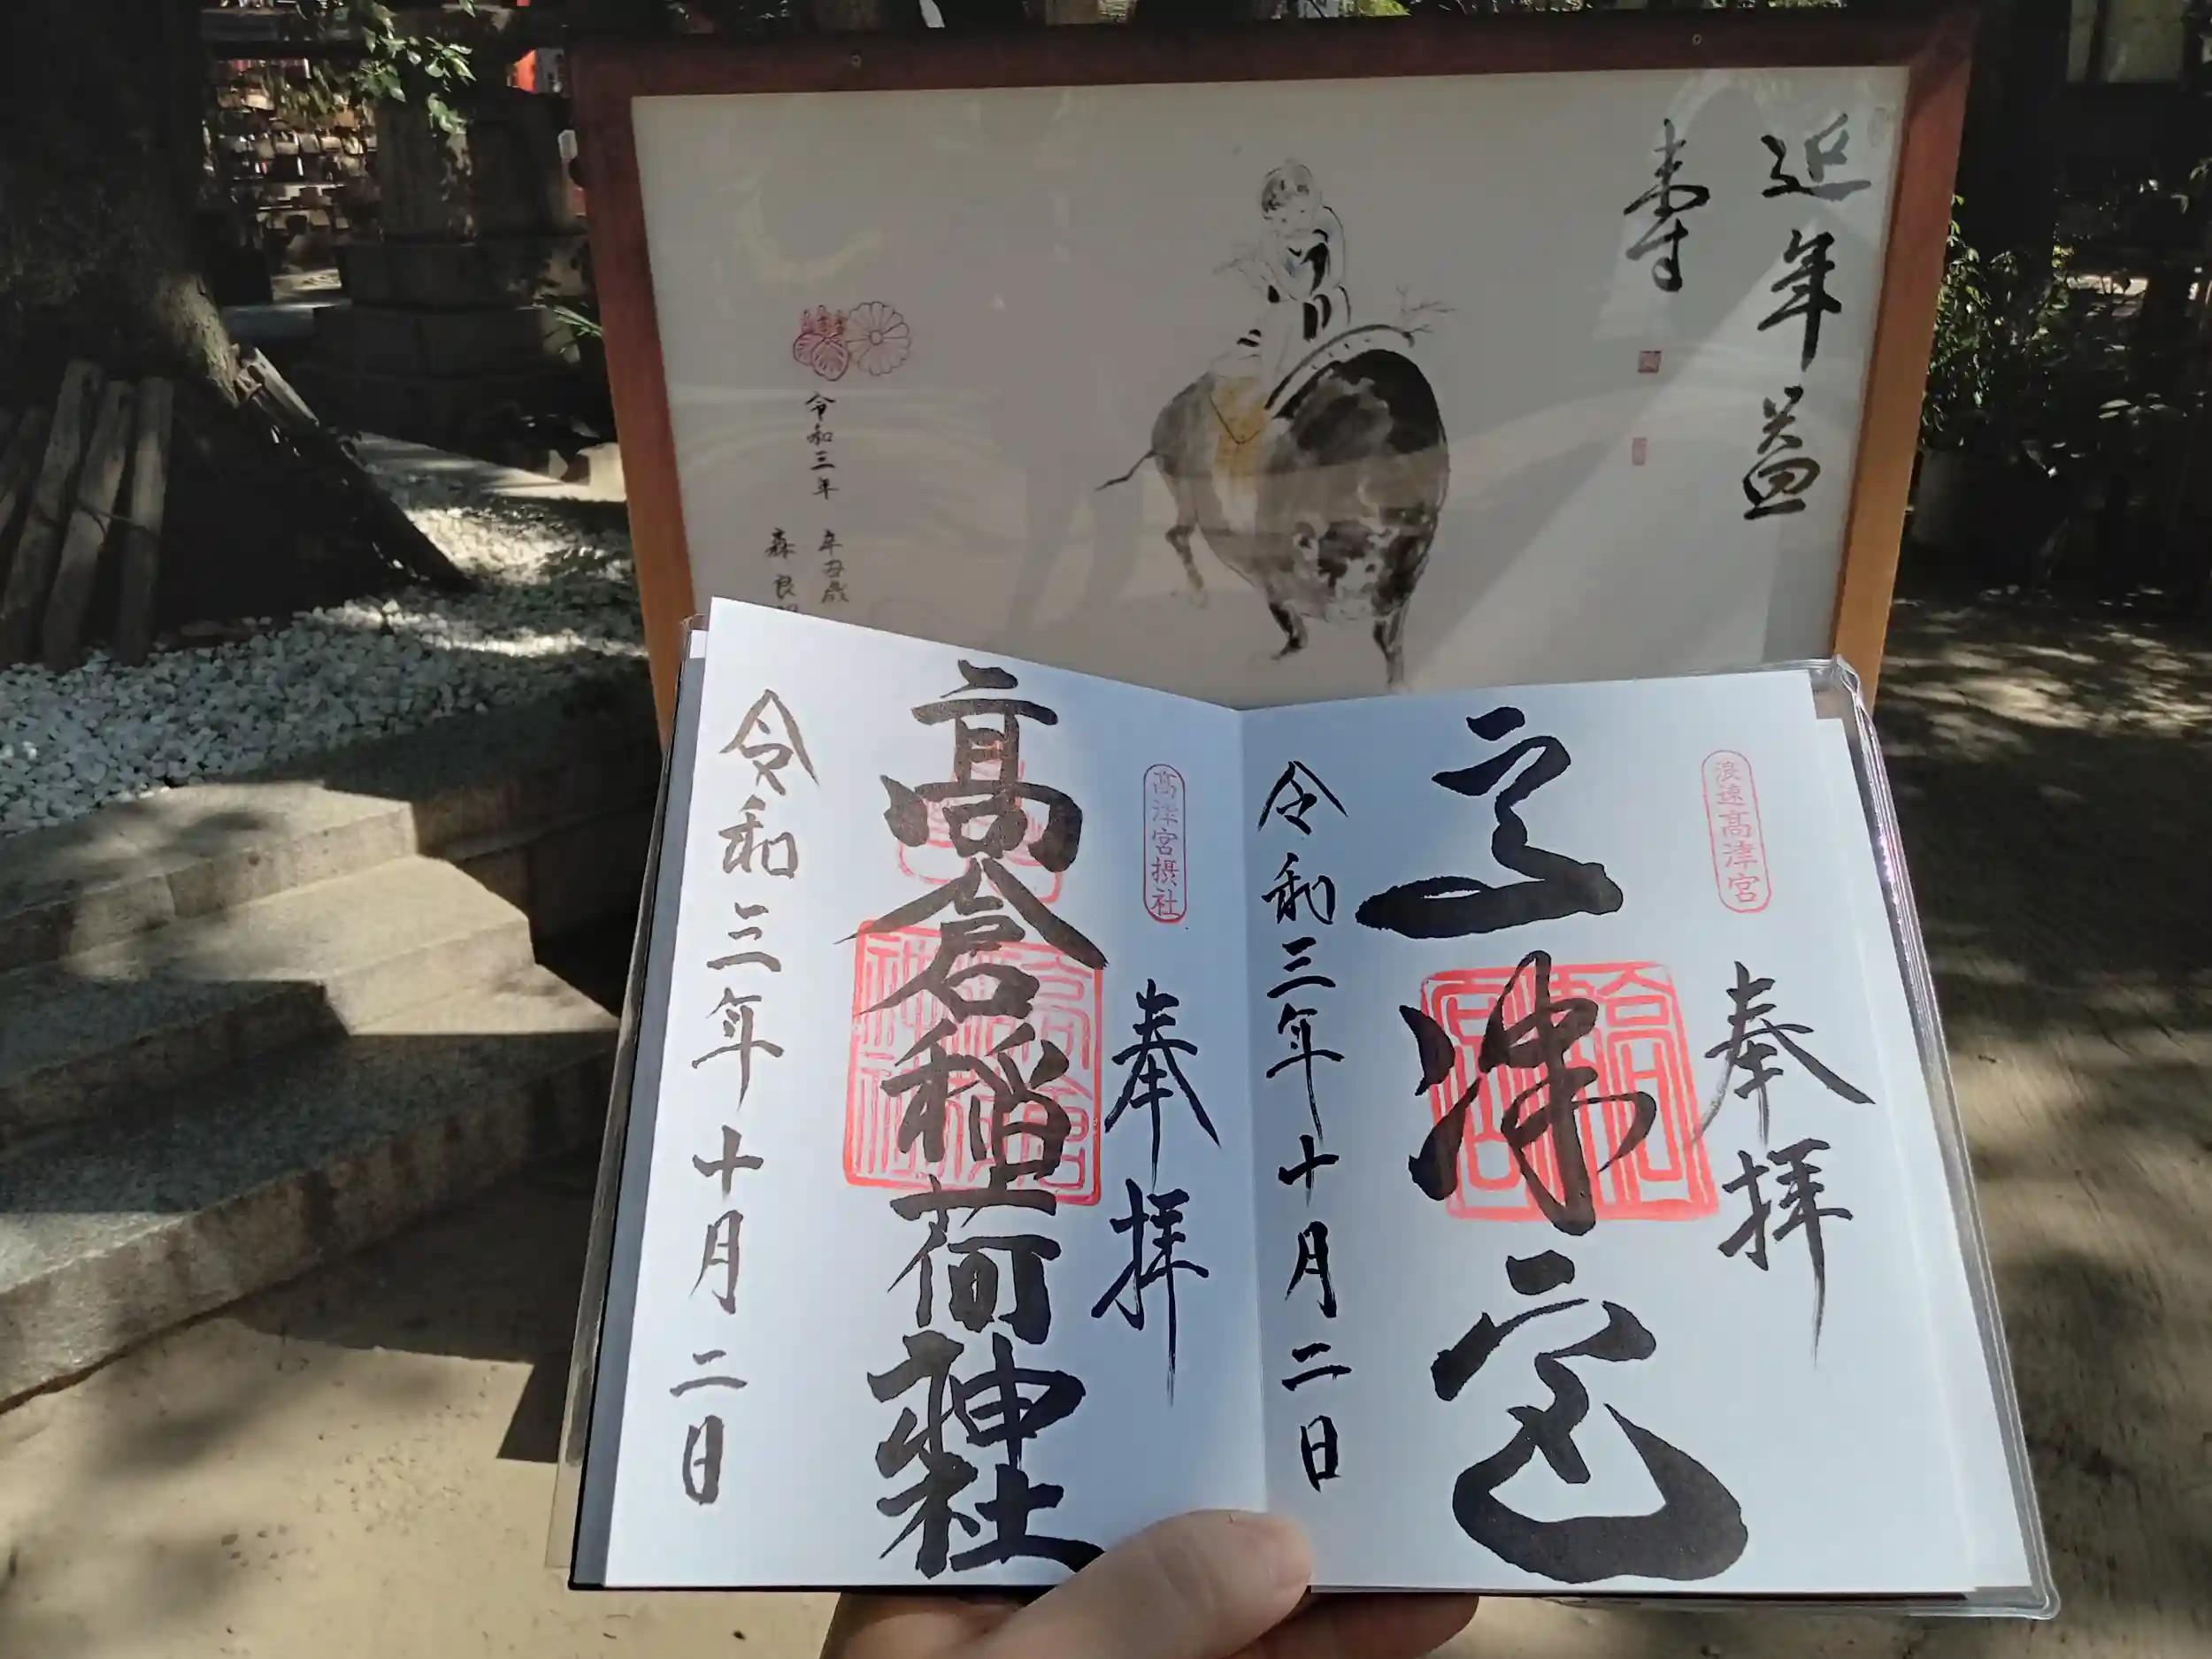 延年益
寿
令和三年
辛丑歳
森良
浪速高津宮
奉拝
高津宮
令和三年十月二日
高津宮摂社
奉拝
高倉稲荷神社
令和三年十月二日